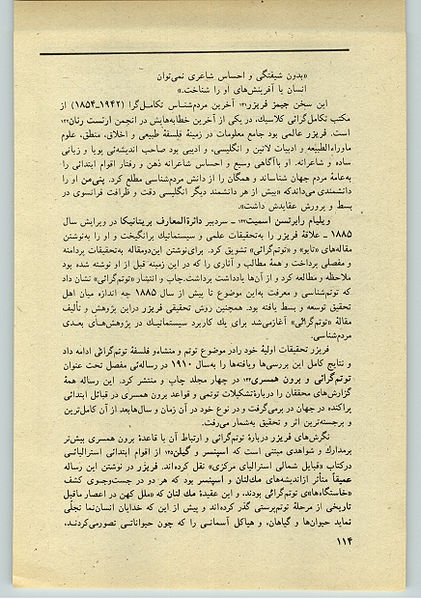 «بدون شیفتگی و احساس شاعری نمی‌توان
انسان یا آفرینش‌های او را شناخت.»
این سخن جیمز فریزر۱۳۱ آخرین مردم‌شناس تکامل‌گرا (۱۹۴۲ـ۱۸۵۴) از
مکتب تکامل‌گرائی کلاسیک، در یکی از آخرین خطابه‌هایش در انجمن ارنست رنان۱۳۲
است. فریزر عالمی بود جامع معلومات در زمینهٔ فلسفهٔ طبیعی و اخلاق، منطق، علوم
ماوراءالطبیعه و ادبیات لاتین و انگلیسی، و ادیبی بود صاحب اندیشه‌ئی پویا و زبانی
ساده و شاعرانه. او باآگاهی وسیع و احساس شاعرانه ذهن و رفتار اقوام ابتدائی را
به‌عامهٔ مردم جهان شناساند و همگان را از دانش مردم‌شناسی مطلع کرد. پنی‌من او را
دانشمندی می‌داندکه «بیش از هر دانشمند دیگر انگلیسی دقت و ظرافت فرانسوی در
بسط و پرورش عقایدش داشت».
ویلیام رابرتسن اسمیت۱۳۳ ـ سردبیر دائرةالمعارف بریتانیکا در ویرایش سال
۱۸۸۵ ـ علاقهٔ فریزر را به‌تحقیقات علمی و سیستماتیک برانگیخت و او را به‌نوشتن
مقاله‌های «تابو» و «توتم‌گرائی» تشویق کرد. برای‌نوشتن این‌دومقاله به‌تحقیقات پردامنه
و مفصلی پرداخت و همهٔ مطالب و آثاری را که در این زمینه قبل از او نوشته شده بود
ملاحظه و مطالعه کرد و از آن‌ها یادداشت برداشت.چاپ و انتشار «توتم‌گرائی» نشان داد
که توتم‌شناسی و معرفت به‌این موضوع تا پیش از سال ۱۸۸۵ چه اندازه میان اهل
تحقیق توسعه و بسط یافته بود. همچنین روش تحقیقی فریزر دراین پژوهش و تألیف
مقالهٔ «توتم‌گرائی» آغازمی‌شد برای یك کاربرد سیستماتیك در پژوهش‌های بعدی
مردم‌شناسی.
فریزر تحقیقات اولیهٔ خود رادر موضوع توتم و منشاءو فلسفهٔ توتم‌گرائی ادامه داد
و نتایج کامل این بررسی‌ها ویافته‌ها را به‌سال ۱۹۱۰ در رساله‌ئی مفصل تحت عنوان
توتم‌گرائی و برون همسری۱۳۴ در چهار مجلد چاپ و منتشر کرد. این رساله همهٔ
گزارش‌های محققان را دربارهٔ تشکیلات توتمی و قواعد برون همسری در قبائل ابتدائی
پراکنده در جهان در برمی‌گرفت و در نوع خود در آن زمان و سال‌هابعد از آن کامل‌ترین
و برجسته‌ترین اثر و تحقیق به‌شمار می‌رفت.
نگرش‌های فریزر دربارهٔ توتم‌گرائی و ارتباط آن با قاعدهٔ برون همسری بیش‌تر
برمدارك و شواهدی مبتنی است که اسپنسر و گیلن۱۳۵ از اقوام ابتدائی استرالیائی
درکتاب «قبایل شمالی استرالیای مرکزی» نقل کرده‌اند. فریزر در نوشتن این رساله
عمیقاً متأثر ازاندیشه‌های مك‌لنان و اسپنسر بود که هر دو در جست‌وجوی کشف
«خاستگاه‌ها»ی توتم‌گرائی بودند، و این عقیدهٔ مك لنان که «ملل کهن در اعصار ماقبل
تاریخی از مرحلهٔ توتم‌پرستی گذر کرده‌اند و پیش از این که خدایان انسان‌نما تجلّی
نماید حیوان‌ها و گیاهان، و هیاکل آسمانی را که چون حیواناتی تصورمی‌کردند،
۱۱۴